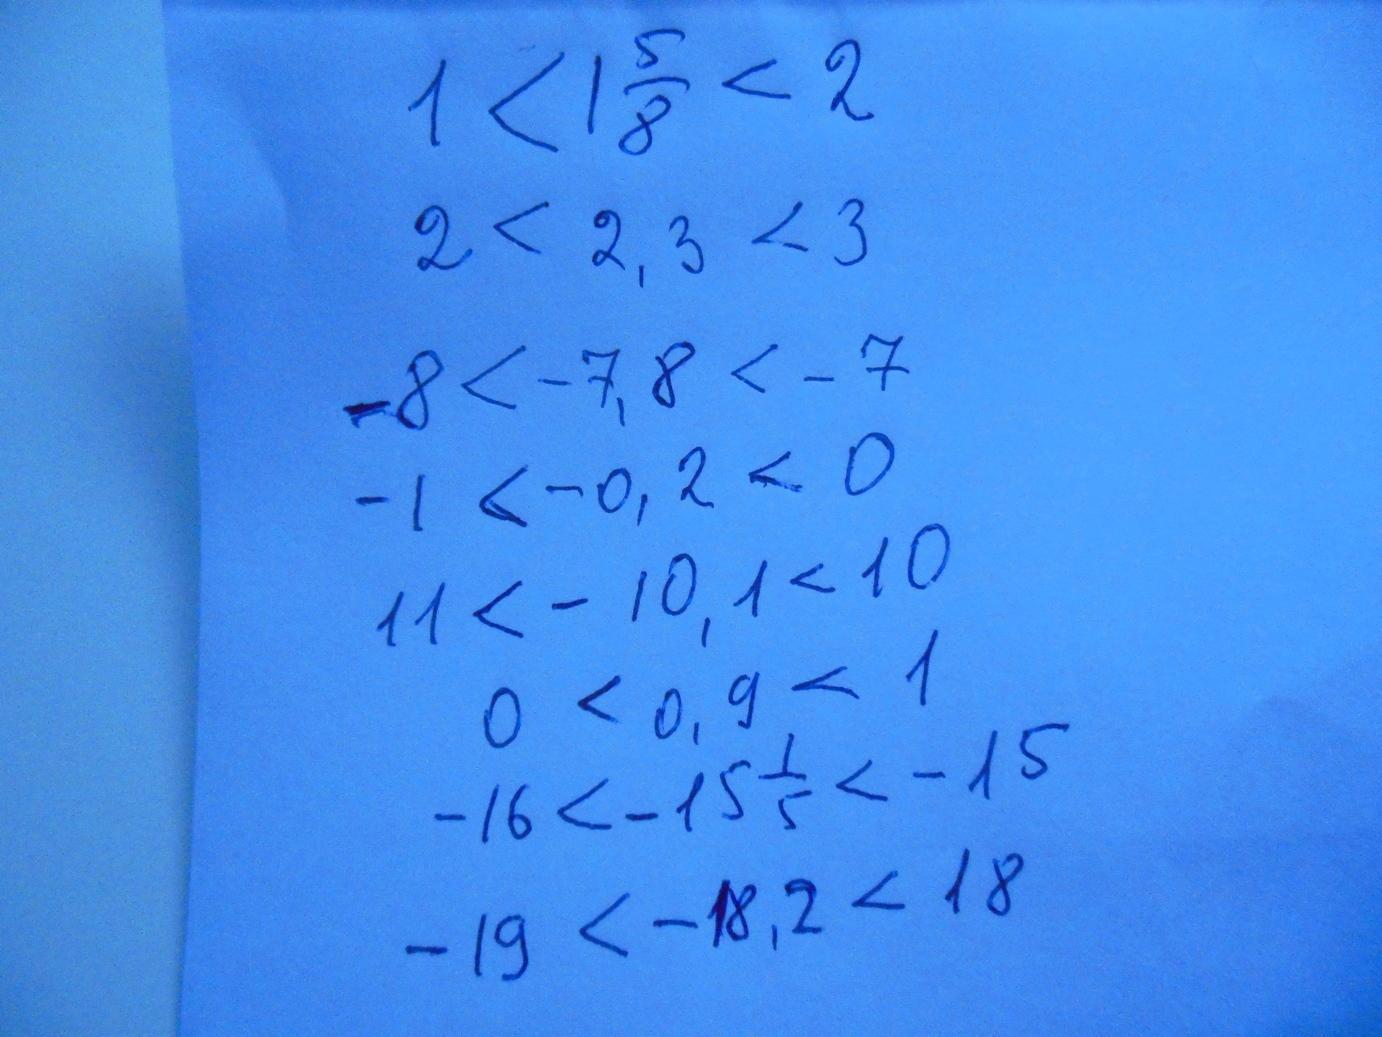 1 < 1 5/8 < 2
2 < 2,3 < 3
-8 < -7,8 < -7
-1 < -0,2 < 0
11 < -10,1 < 10
0 < 0,9 < 1
-16 < -15 1/5 < -15
-19 < -18,2 < 18